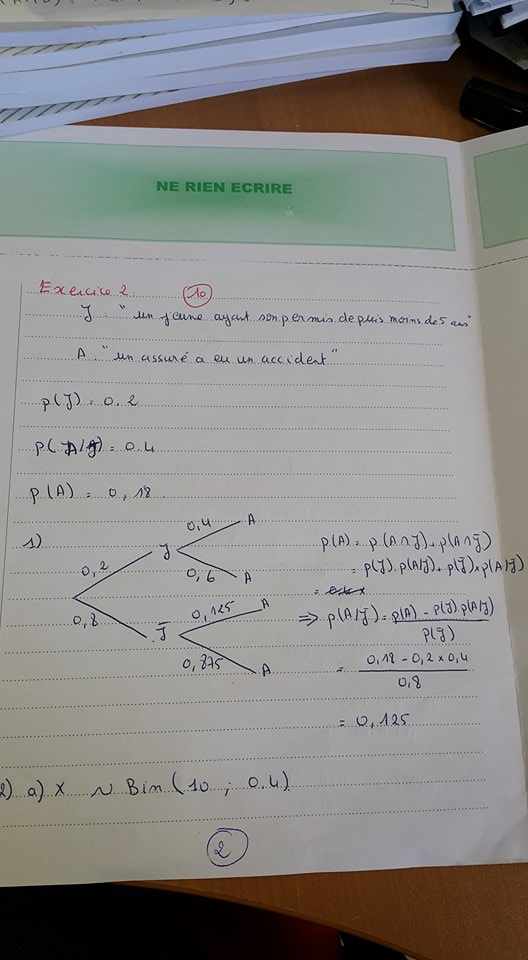 NE RIEN ECRIRE
Exercice 2: 10
J : "un jeune ayant son permis depuis moins de 5 ans"
A : "un assuré a eu un accident"
p(J) = 0.2
p(A/J) = 0.4
p(A) = 0,18
1)
0,2 J 0,4 A
0,6 A
0,8 J̅ 0,125 A
0,875 A
p(A) = p(A∩J) + p(A∩J̅)
= p(J).p(A/J) + p(J̅) × p(A/J̅)
=
⇒ p(A/J̅) = p(A) - p(J).p(A/J)
p(J̅)
= 0,18 - 0,2 × 0,4
0,8
= 0,125
2) a) X ~ Bin (10 ; 0.4)
2